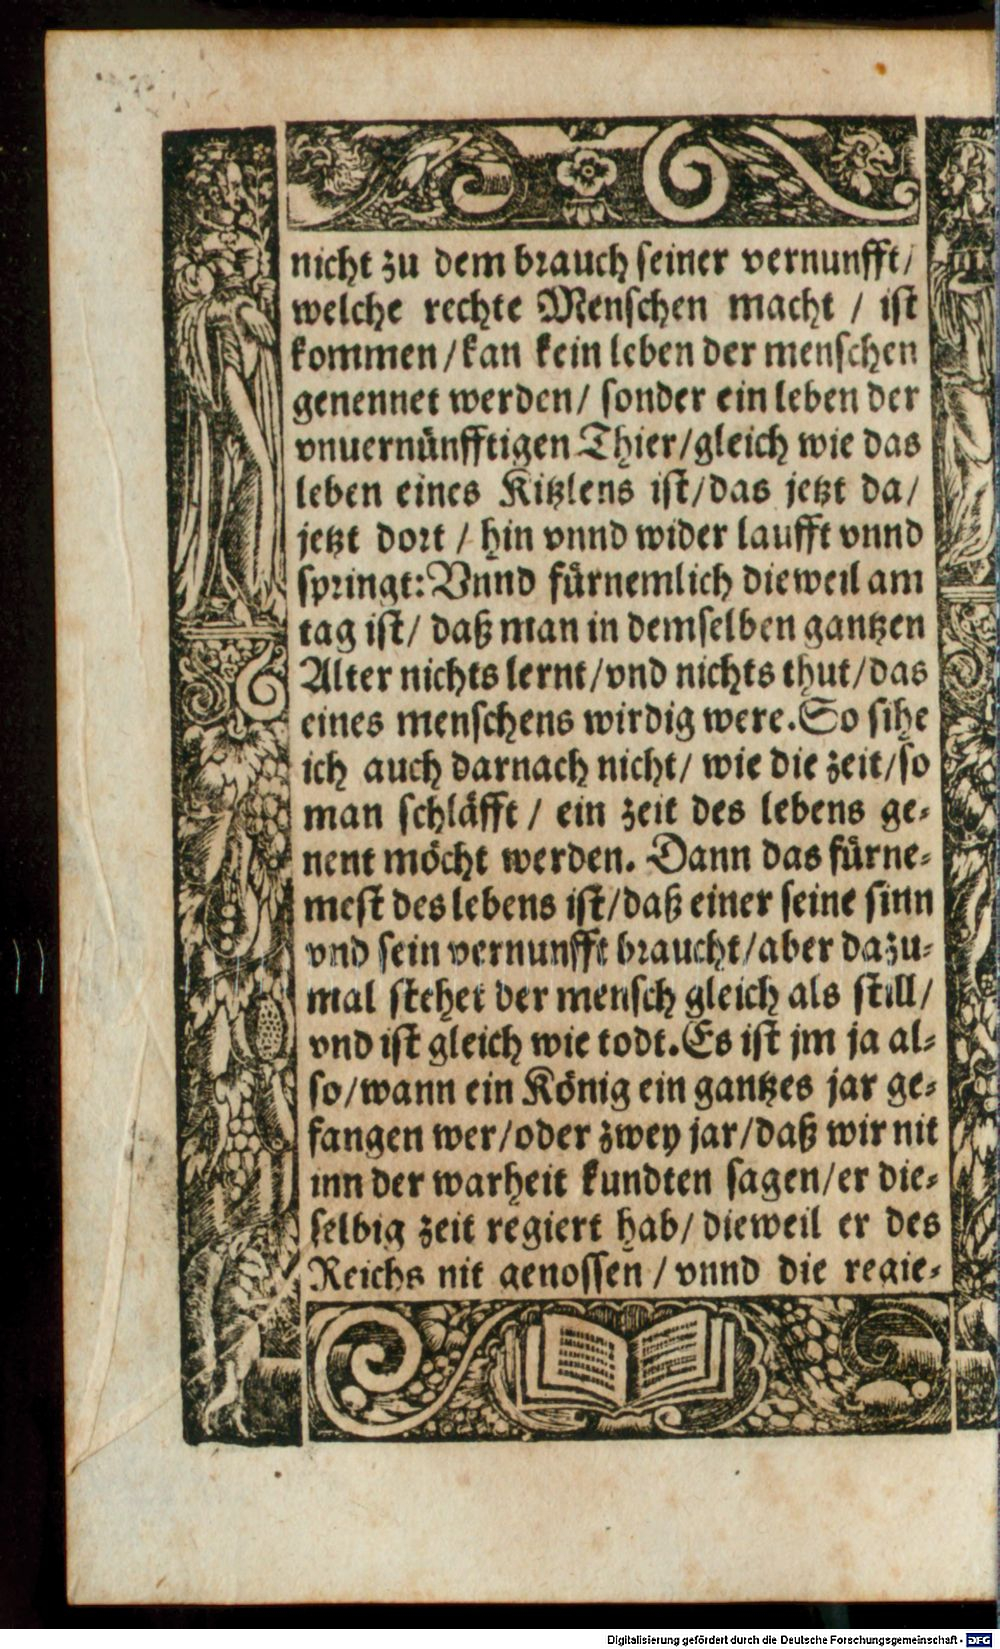 nicht zu dem brauch seiner vernunfft/
welche rechte Menschen macht / ist
kommen/kan kein leben der menschen
genennet werden/ sonder ein leben der
vnuernünfftigen Thier/gleich wie das
leben eines Kitzlens ist/das jetzt da/
jetzt dort / hin vnnd wider laufft vnnd
springt: Vnnd fürnemlich dieweil am
tag ist/ daß man in demselben gantzen
Alter nichts lernt/vnd nichts thut/das
eines menschens wirdig were. So sihe
ich auch darnach nicht/ wie die zeit/so
man schläfft / ein zeit des lebens ge-
nent möcht werden. Dann das fürne-
mest des lebens ist/daß einer seine sinn
vnd sein vernunfft braucht/aber dazu-
mal stehet der mensch gleich als still/
vnd ist gleich wie todt. Es ist jm ja al-
so/wann ein König ein gantzes jar ge-
fangen wer/oder zwey jar/daß wir nit
inn der warheit kundten sagen/er die-
selbig zeit regiert hab/ dieweil er des
Reichs nit genossen / vnnd die regie-
Digitalisierung gefördert durch die Deutsche Forschungsgemeinschaft - DFG